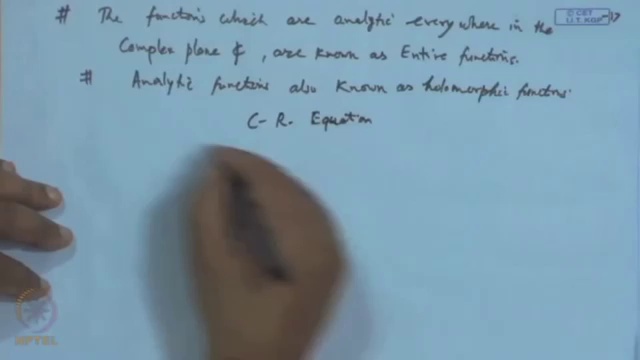 # The functions which are analytic everywhere in the
Complex plane ₵, are known as Entire functions.
# Analytic functions also known as holomorphic functions.
C-R. Equation
© CET
I.I.T. KGP
NPTEL